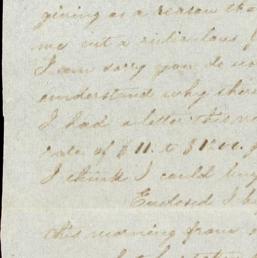 giving as a reason tha
me out a ridiculous
I am sorry you do no
understand why shou
I had a letter this mo
rate of $11. to $12
I think I could buy
Enclosed I h
this morning from